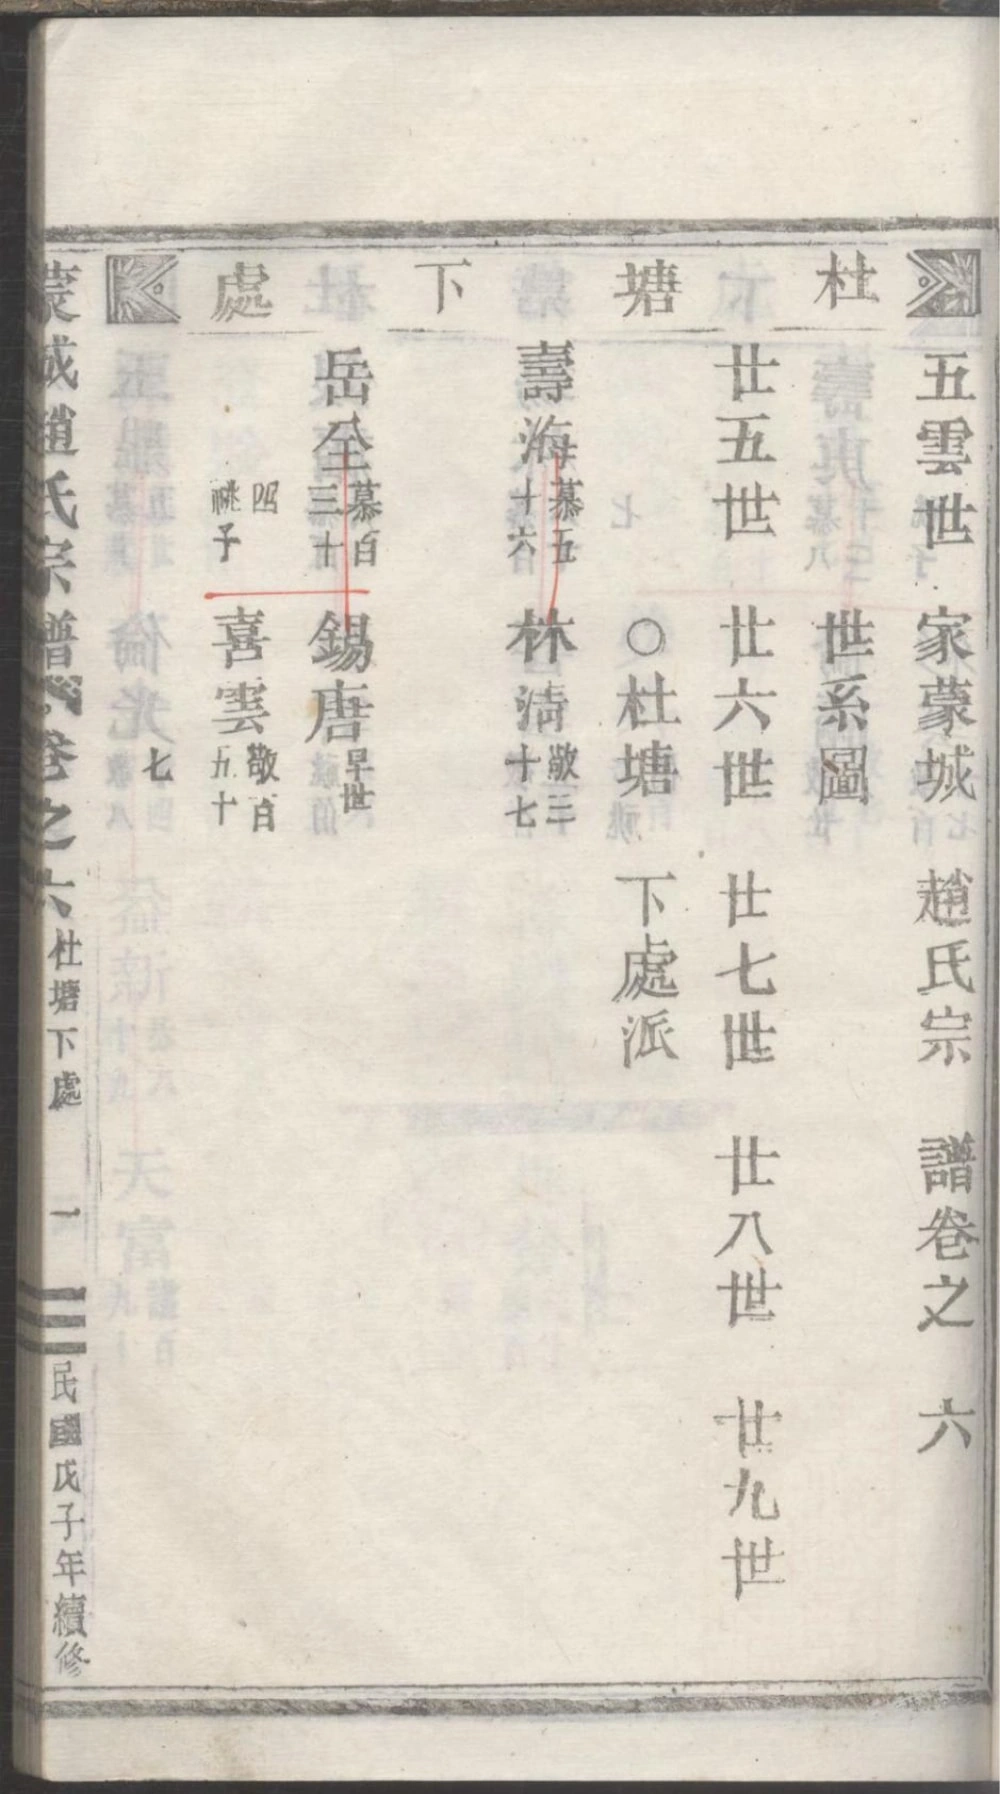 杜塘下處
五雲世家蒙城趙氏宗譜卷之六
世系圖
廿五世 廿六世 廿七世 廿八世 廿九世
○杜塘下處派
壽海 慕五十六 林清 敬三十七
岳全 慕百三十四 錫唐 早世
祧子 喜雲 敬百五十七
蒙城趙氏宗譜 卷之六 杜塘下處 一 民國戊子年續修